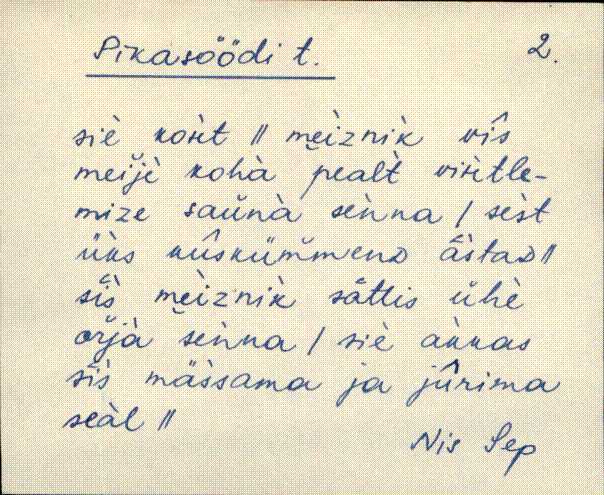 Pikasöödi t. 2.
siè kòit || mèiznìk vîs
meijè kohà pealt vìsìtle-
mize saŭnà sènna / sèst
üks kûskümmenD âstaD ||
sîs mèiznìk sâttis ühè
orjà sènna / siè àkkas
sîs màssama ja jûrima
seàl ||
Nis Sep